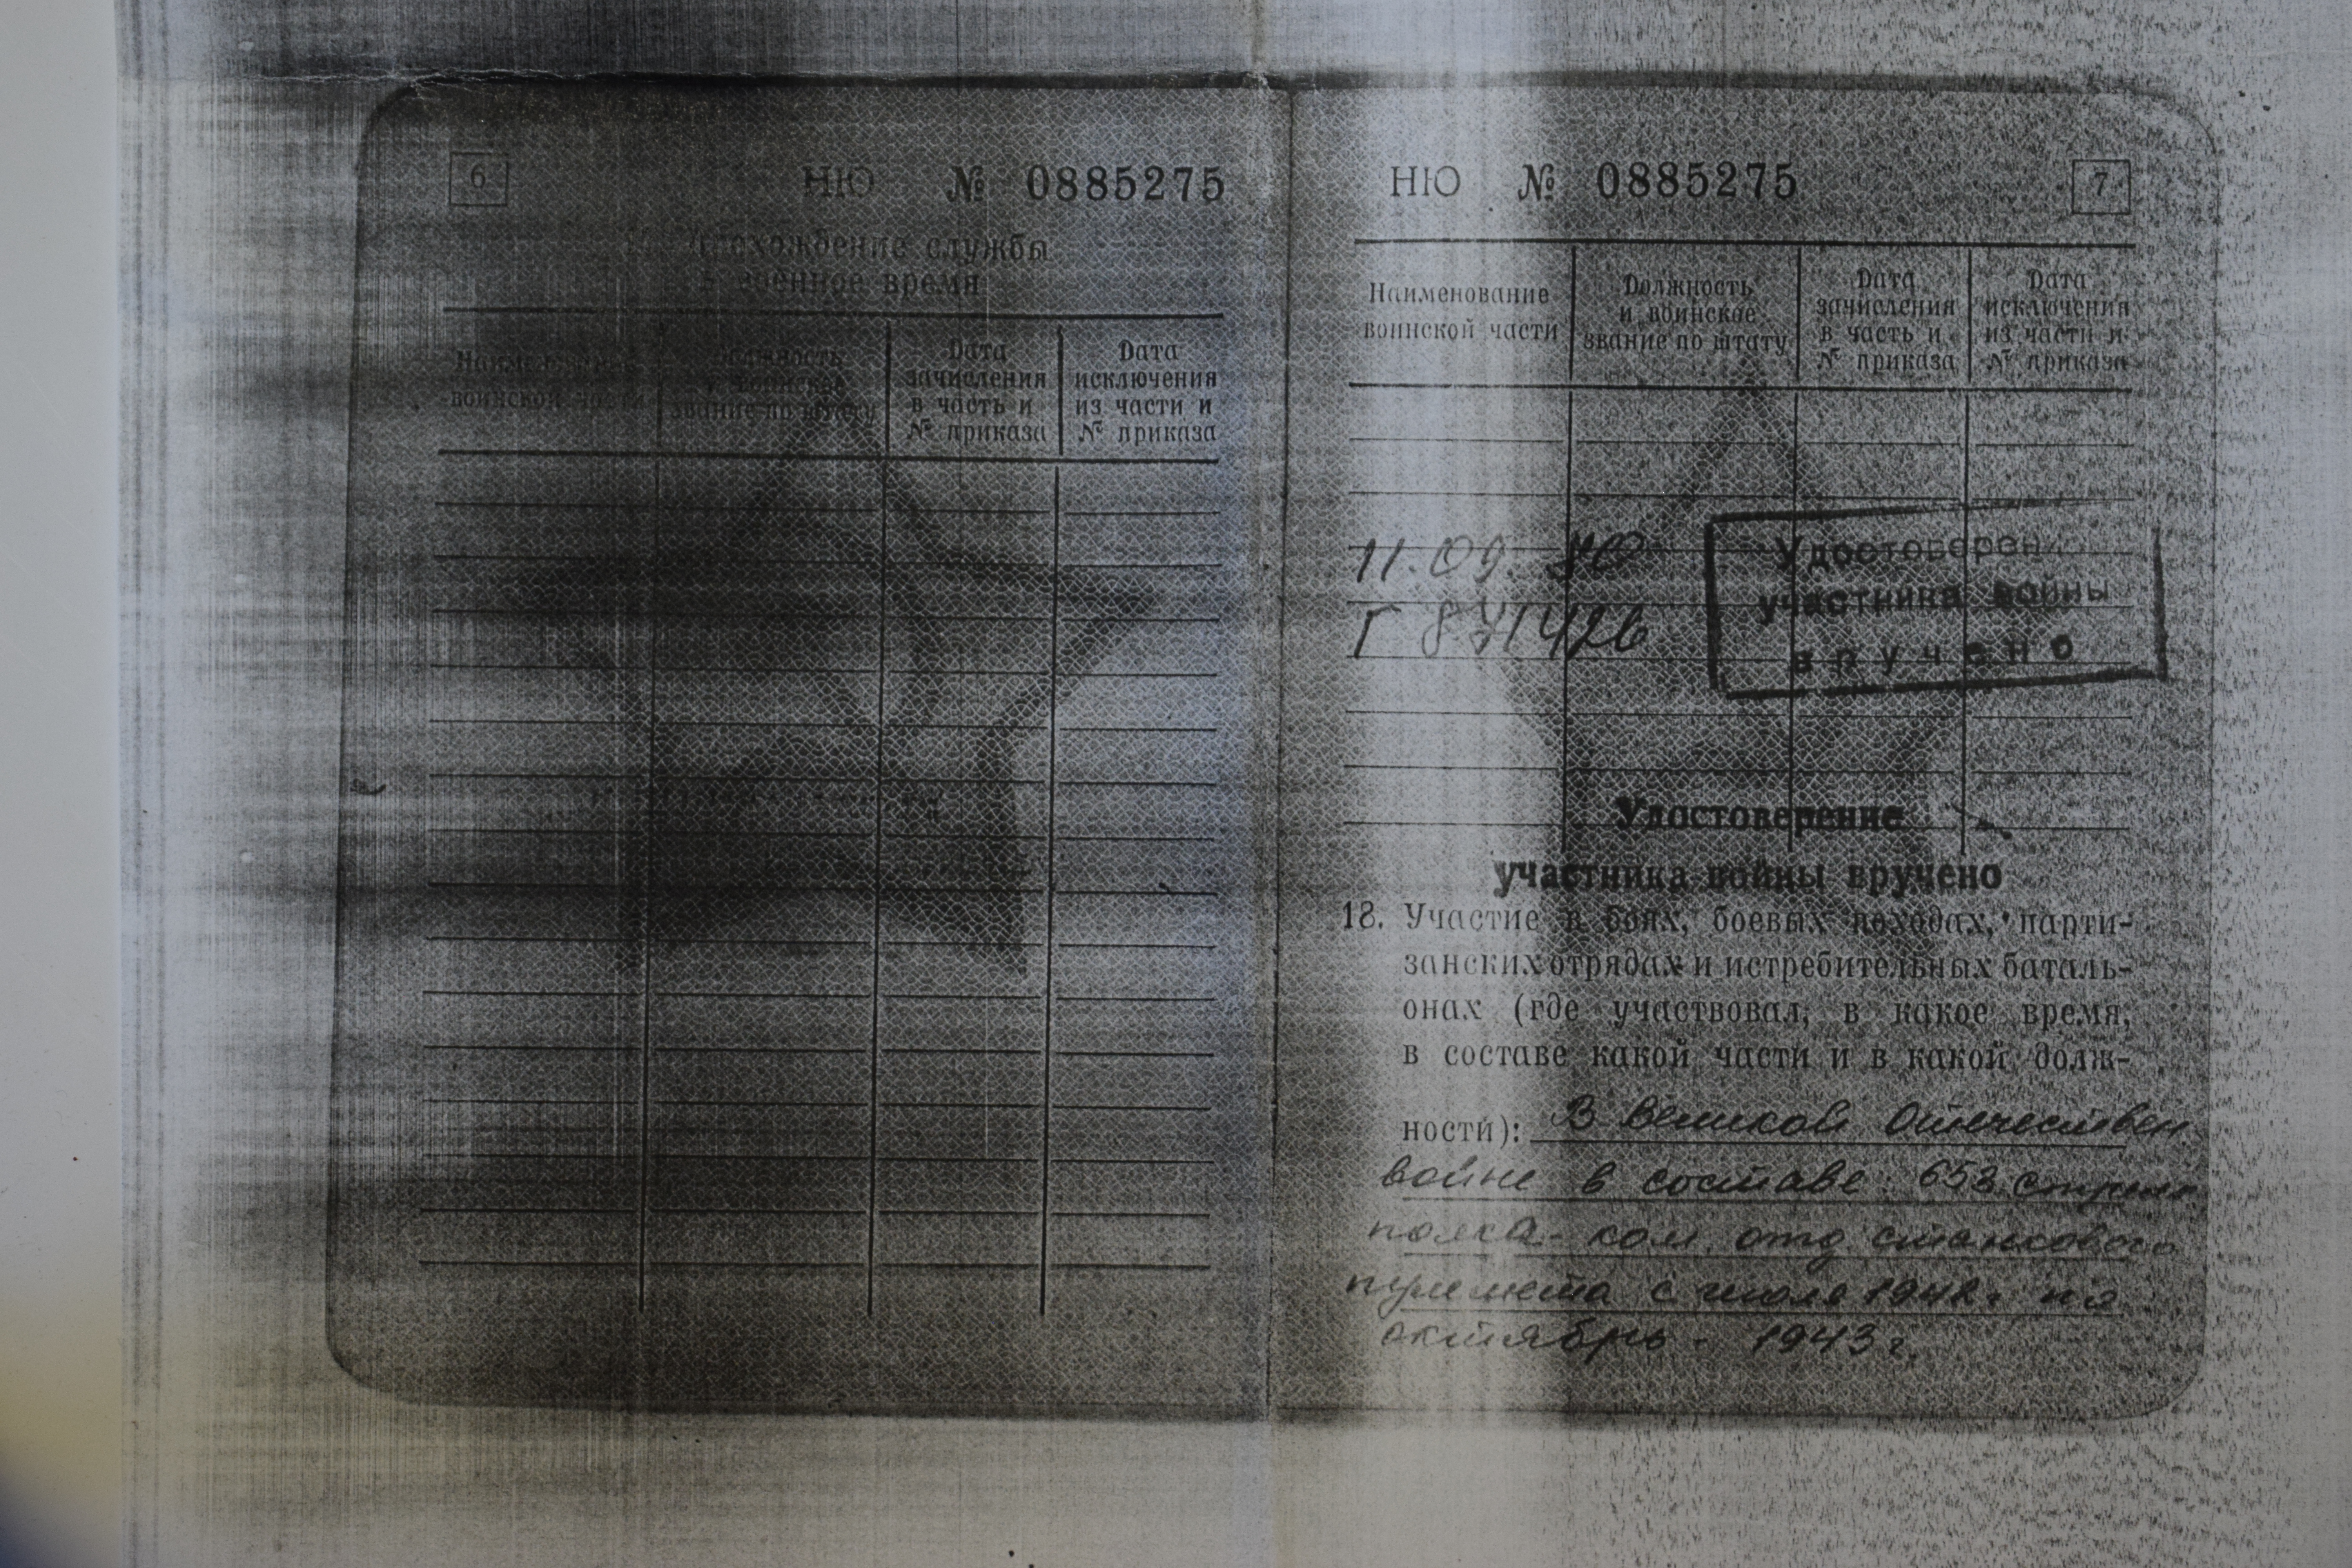 6
НЮ № 0885275
Прохождение службы
в военное время
Наименование
воинской части
Должность
и воинское
звание по штату
Дата
зачисления
в часть и
№ приказа
Дата
исключения
из части и
№ приказа
НЮ № 0885275
7
Наименование
воинской части
Должность
и воинское
звание по штату
Дата
зачисления
в часть и
№ приказа
Дата
исключения
из части и
№ приказа
11.09.
Г 871426
Удостоверен
участника войны
вручено
Удостоверение
участника войны вручено
18. Участие в боях, боевых походах, парти-
занских отрядах и истребительных баталь-
онах (где участвовал, в какое время,
в составе какой части и в какой долж-
ности): В Великой Отечествен
войне в составе 653 стрелк
полка - ком. отд станкового
пулемета с июля 1942 г. по
октябрь - 1943 г.